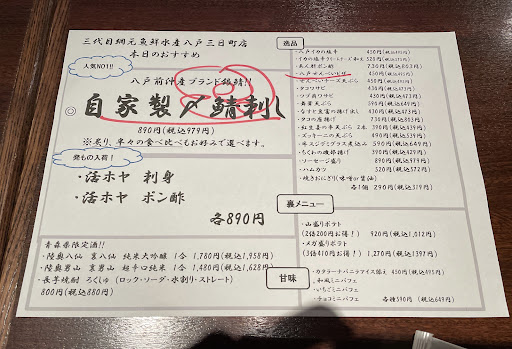 三代目網元魚鮮水産八戸三日町店
本日のおすすめ
人気NO1!!
八戸前沖産ブランド銀鯖!!
◎自家製〆鯖刺し
890円(税込979円)
※炙り、半々の食べ比べもお好みで選べます。
発もの入荷!
・活ホヤ 刺身
・活ホヤ ポン酢
各890円
青森県限定酒!!
・陸奥八仙 裏八仙 純米大吟醸 1合 1,780円(税込1,958円)
・陸奥男山 裏男山 超辛口純米 1合 1,480円(税込1,628円)
・長芋焼酎 ろくしゅ(ロック・ソーダ・水割り・ストレート)
800円(税込880円)
逸品
・八戸イカの塩辛 450円(税込495円)
・あん肝ポン酢 730円(税込803円)
・八戸せんべいピザ 450円(税込495円)
・せんべいチーズ天ぷら
・タコワサビ 430円
・ツブ貝ワサビ 430円
・舞茸天ぷら
・なすと豆腐の揚げ出し
・タコの唐揚げ 730円(税込803円)
・紅生姜の半天ぷら 2本 390円(税込429円)
・ズッキーニの天ぷら 490円(税込539円)
・牛スジデミグラス煮込み 590円(税込649円)
・ちくわの磯部揚げ 390円(税込429円)
・ソーセージ盛り 890円(税込979円)
・ハムカツ 320円(税込352円)
・焼きおにぎり(味噌or醤油)
各1個 290円(税込319円)
裏メニュー
・山盛りポテト
(2倍200円お得!) 920円(税込1,012円)
・メガ盛りポテト
(3倍410円お得!) 1,270円(税込1397円)
甘味
・カタラーナバニラアイス添え 450円(税込495円)
・和風ミニパフェ
・いちごミニパフェ
・チョコミニパフェ 各種590円 (税込649円)